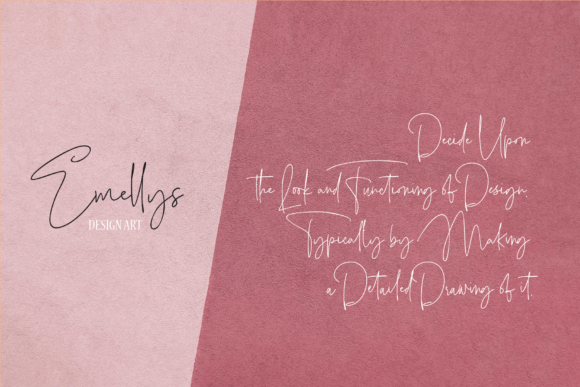 Emellys
DESIGN ART
Decide Upon
the Look and Functioning of Design.
Typically by Making
a Detailed Drawing of it.